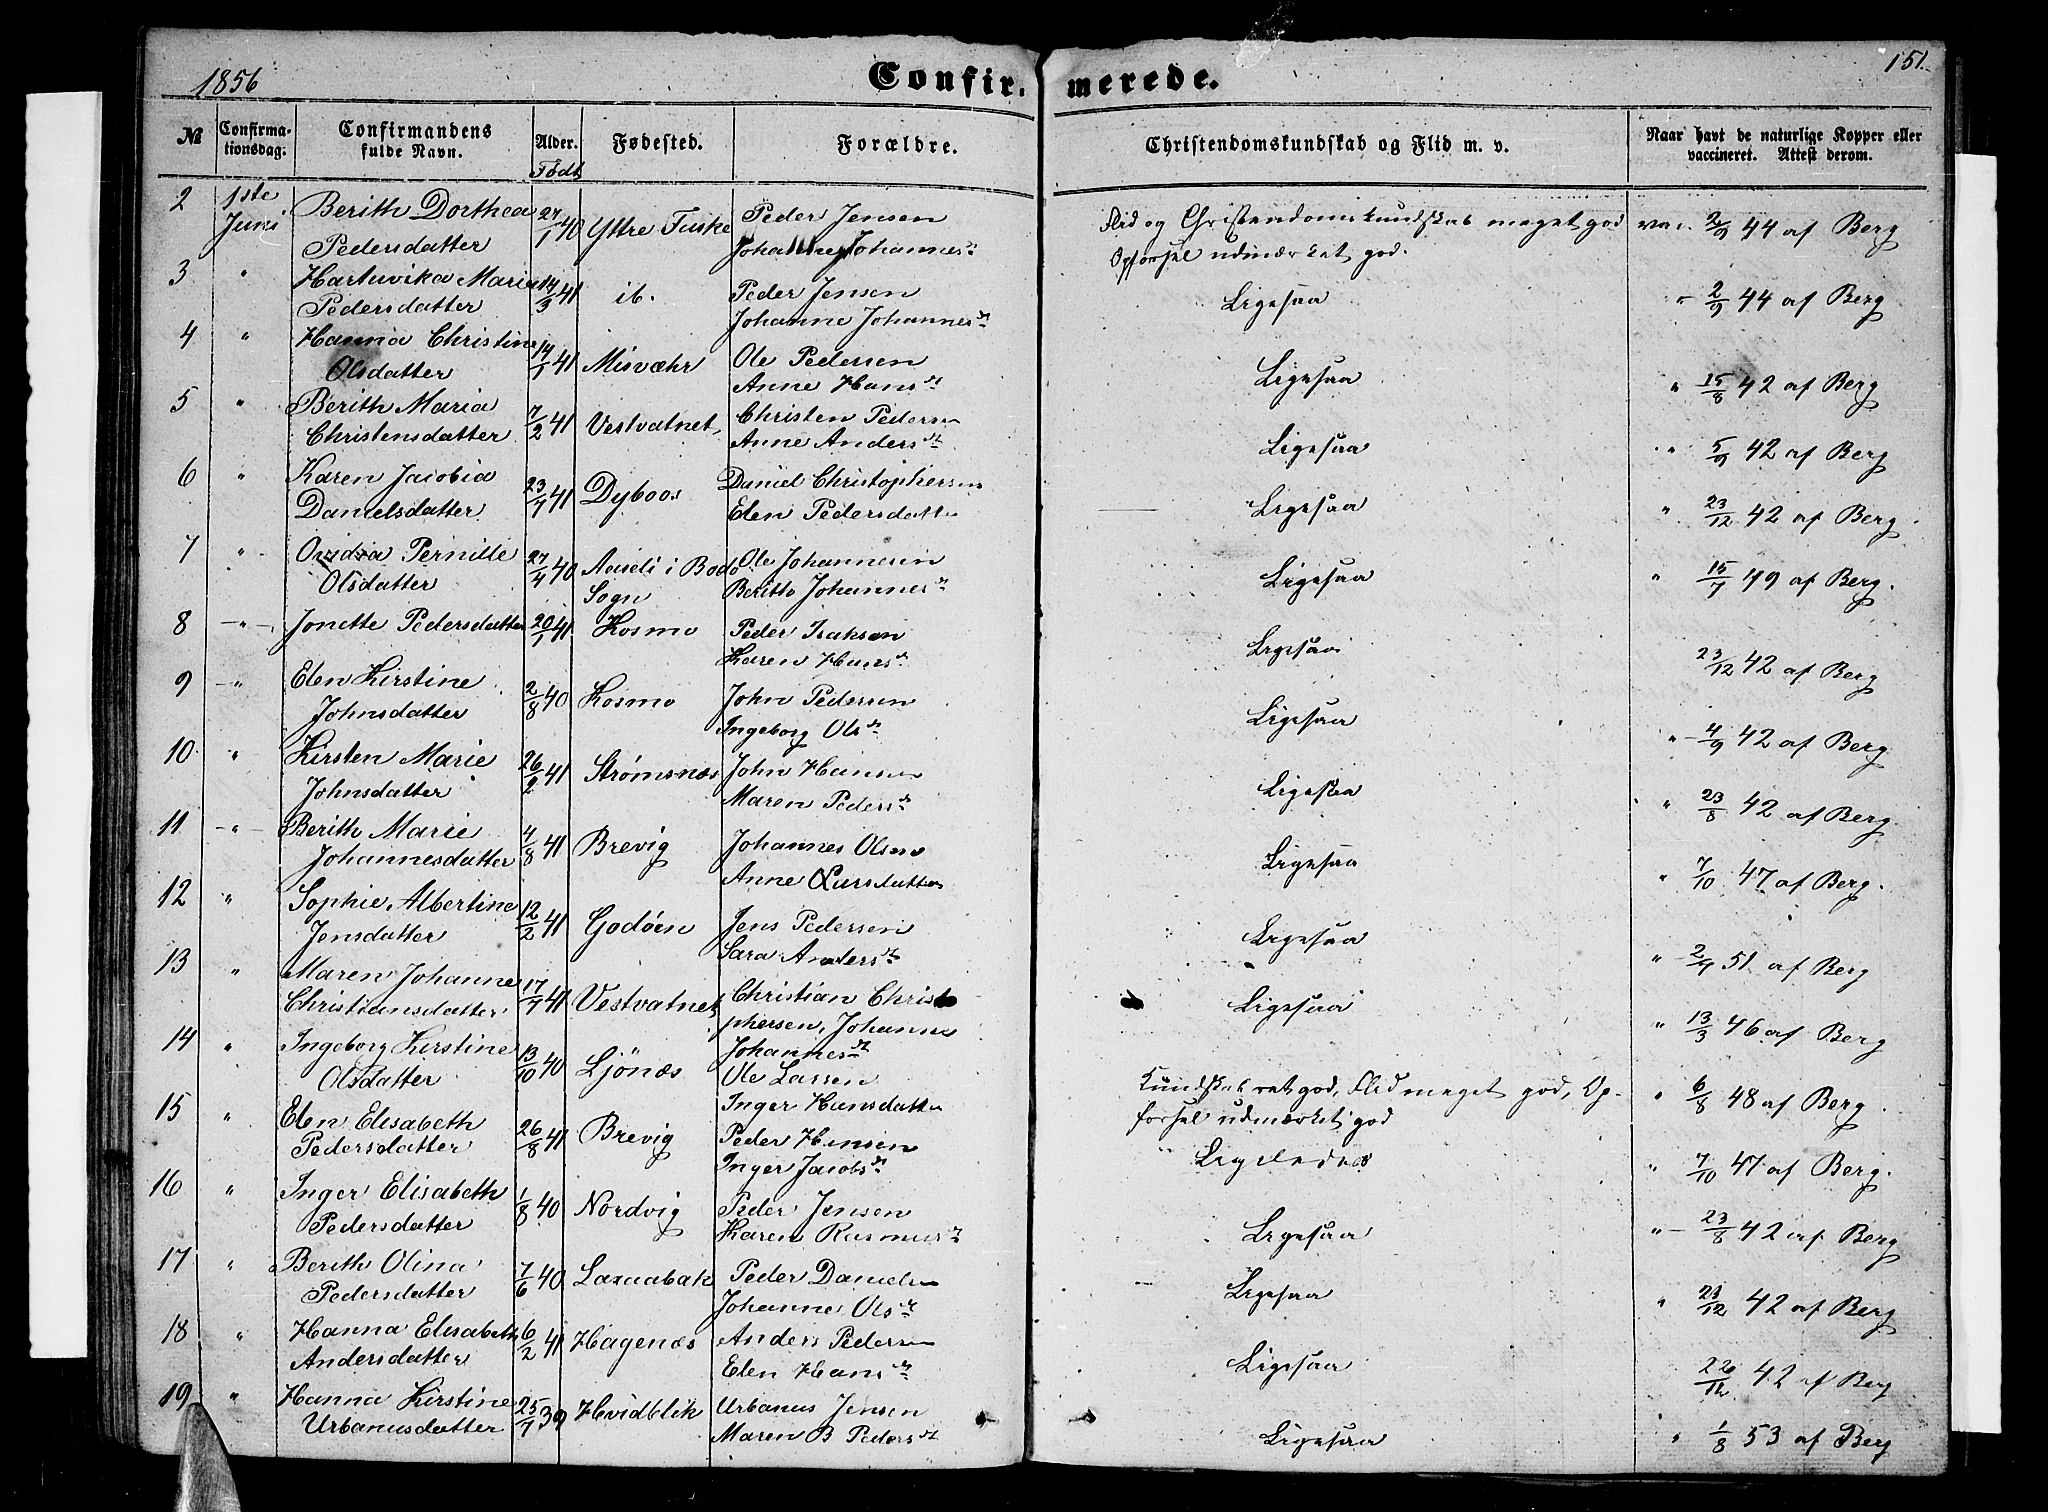 1856
Confirmerede.
151.
№ Confirmationsdag. Confirmandens fulde Navn. Alder. Født Fødested. Forældre. Christendomskundskab og Flid m. v. Naar havt de naturlige Kopper eller vaccineret. Attest derom.
2 1ste Juni Berith Dorthea 27/1 40 Yttre Fuske Peder Jensen Flid og Christendomskundskab meget god vac. 2/9 44 af Berg
Pedersdatter Johanne Johannesdt Opførsel udmærket god.
3 " Hartuvika Maria 14/3 41 ib. Peder Jensen Ligesaa " 2/9 44 af Berg
Pedersdatter Johanne Johannesdt
4 " Hanna Christine 14/1 41 Misvæhr Ole Pedersen Ligesaa " 15/8 42 af Berg
Olsdatter Anne Hansdt
5 " Berith Maria 7/2 41 Vestvatnet Christen Pedersen Ligesaa " 5/9 42 af Berg
Christensdatter Anne Andersdt
6 " Karen Jacobia 23/7 41 Dyboos Daniel Christophersen Ligesaa " 23/12 42 af Berg.
Danielsdatter Elen Pedersdatter
7 " Ovidia Pernille 27/4 40 Aaseli i Bodø Ole Johannesen Ligesaa " 15/7 49 af Berg.
Olsdatter Sogn Beritte Johannesdt
8 " Jonette Pedersdatter 20/1 41 Kosmo Peder Isaksen Ligesaa 23/12 42 af Berg
Karen Hansdt
9 " Elen Kirstine 2/8 40 Kosmo John Pedersen Ligesaa " 4/9 42 af Berg
Johnsdatter Ingeborg Olsdt
10 " Kirsten Marie 26/2 41 Strømsnes John Hansen Ligesaa " 23/8 42 af Berg.
Johnsdatter Maren Pedersdt
11 " Berith Marie 4/8 41 Brevig Johannes Olsen Ligesaa " 7/10 47 af Berg.
Johannesdatter Anne Larsdatter
12 " Sophie Albertine 12/2 41 Godøen Jens Pedersen Ligesaa " 2/9 51 af Berg
Jensdatter Sara Andersdt
13 " Maren Johanne 17/7 41 Vestvatnet Christian Christo Ligesaa " 13/3 46 af Berg
Christiansdatter phersen, Johanne
Johannesdt
14 " Ingeborg Kirstine 13/10 40 Ljønæs Ole Larsen Kundskab ret god, Flid meget god, Op- " 6/8 48 af Berg.
Olsdatter Inger Hansdatter førsel udmærket god
15 " Elen Elisabeth 26/8 41 Brevig Peder Hansen Ligeledes " 7/10 47 af Berg.
Pedersdatter Inger Jacobsdt
16 " Inger Elisabeth 1/8 40 Nordvig Peder Jensen Ligesaa " 23/8 42 af Berg
Pedersdatter Karen Rasmusdt
17 " Berith Olina 7/6 40 Laxaabak Peder Danielsen Ligesaa " 23/12 42 af Berg
Pedersdatter Johanne Olsdt
18 " Hanna Elisabeth 6/2 41 Hagenæs Anders Pedersen Ligesaa 22/12 42 af Berg
Andersdatter Elen Hansdt
19 " Hanna Kirstine 25/7 39 Hvidblik Urbanus Jensen Ligesaa " 1/8 53 af Berg
Urbanusdatter Maren B Pedersdt